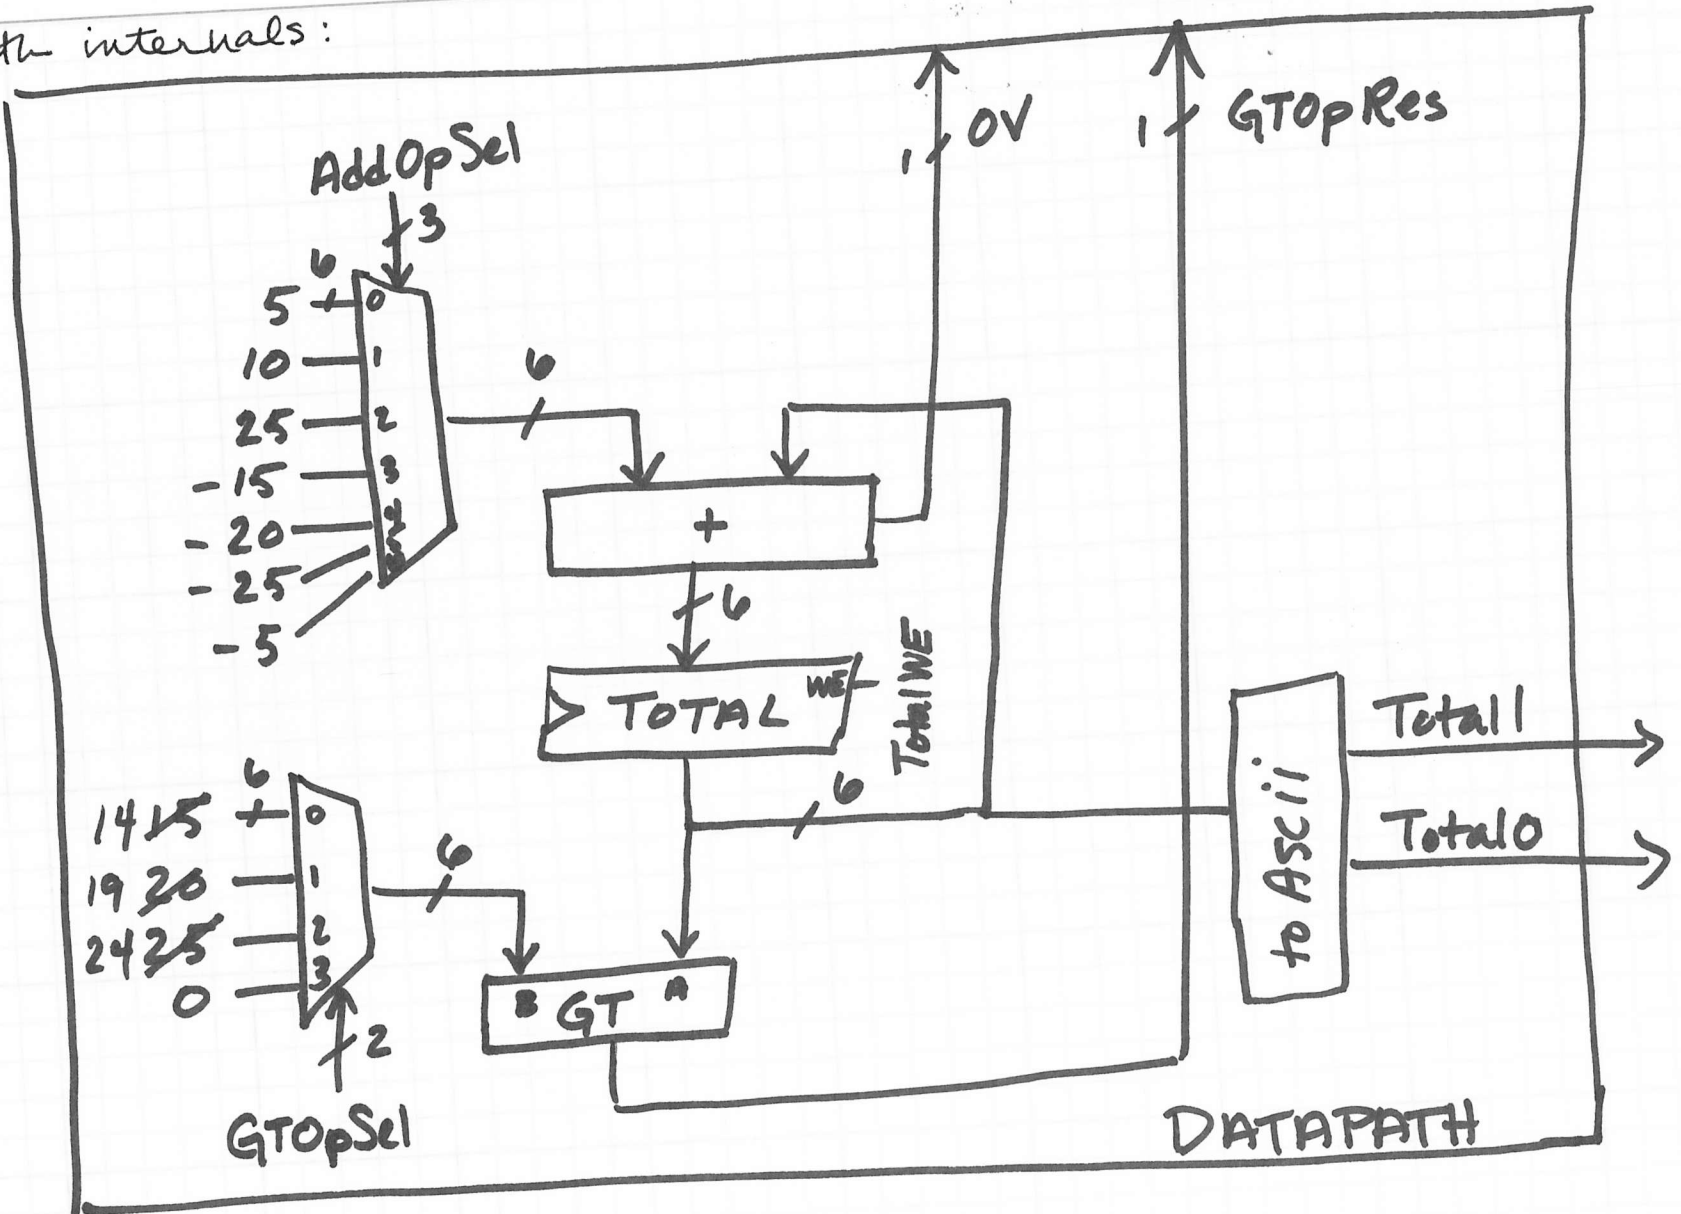 th internals:
AddOpSel
3
OV
1
GTOpRes
1
6
5
0
10
1
25
2
-15
3
-20
4
-25
5
-5
6
6
+
6
TOTAL
WE
TotalWE
6
6
14 15
0
19 20
1
24 25
2
0
3
6
2
GTOpSel
B
GT
A
to Ascii
Total1
Total0
DATAPATH